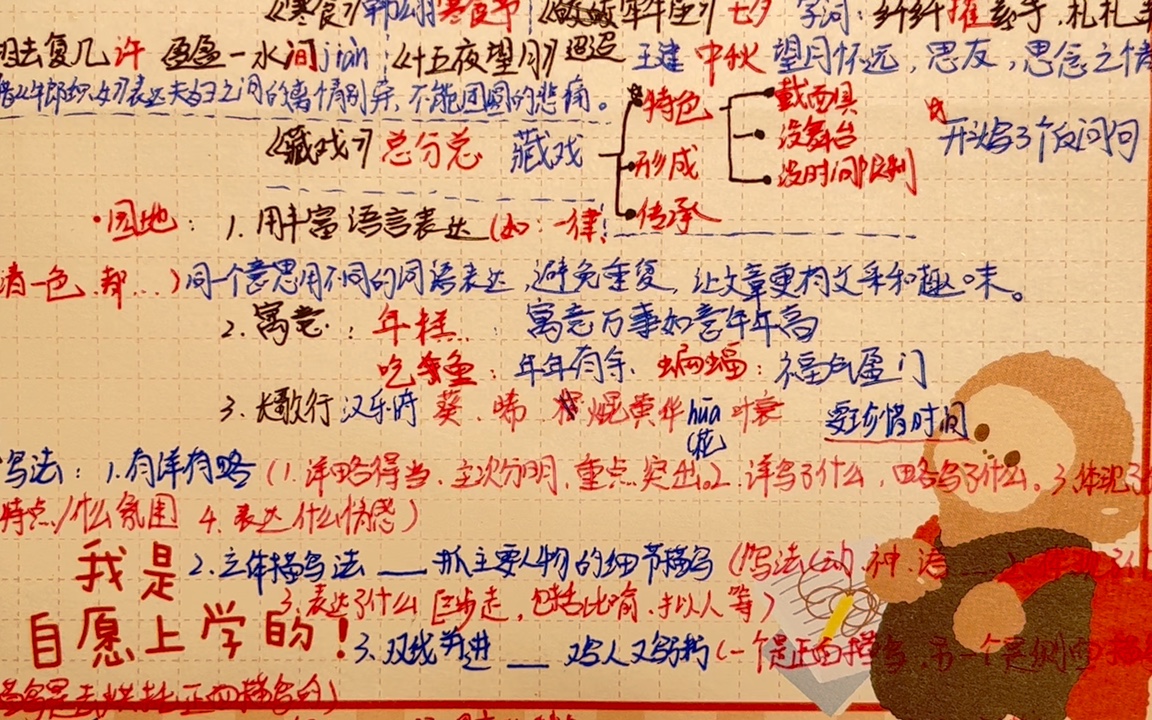 《寒食》韩翃 寒食节 牵牛 七夕 字词：纤纤擢素手，札札弄
相去复几许 盈盈一水间jiàn；《十五夜望月》 王建 中秋 望月怀远，思友，思念之情
表达夫妇之间的离情别弃，不能团圆的悲痛。
特色 戴面具
《藏戏》总分总 藏戏 没舞台 开头写3个反问句
形成 没时间限制
传承
·园地：1.用丰富语言表达(如：一律，
清一色.都...)同一个意思用不同的词语表达，避免重复，让文章更有文采和趣味。
2.寓意：年糕：寓意万事如意年年高
吃鱼：年年有余 蝙蝠：福气盈门
3.长歌行 汉乐府 葵．晞．焜黄华huā(花 叶衰 要珍惜时间
写法：1.有详有略（1.详略得当，主次分明，重点突出。2.详写了什么，略写了什么。3.体现了
特点/什么氛围 4.表达什么情感）
我是
2.立体描写法——抓主要人物的细节描写（写法(动.神.语
3.表达了什么 包括比喻，拟人等）
自愿上学的！
3.双线并进——（一个是正面描写，另一个是侧面
正面描写的）